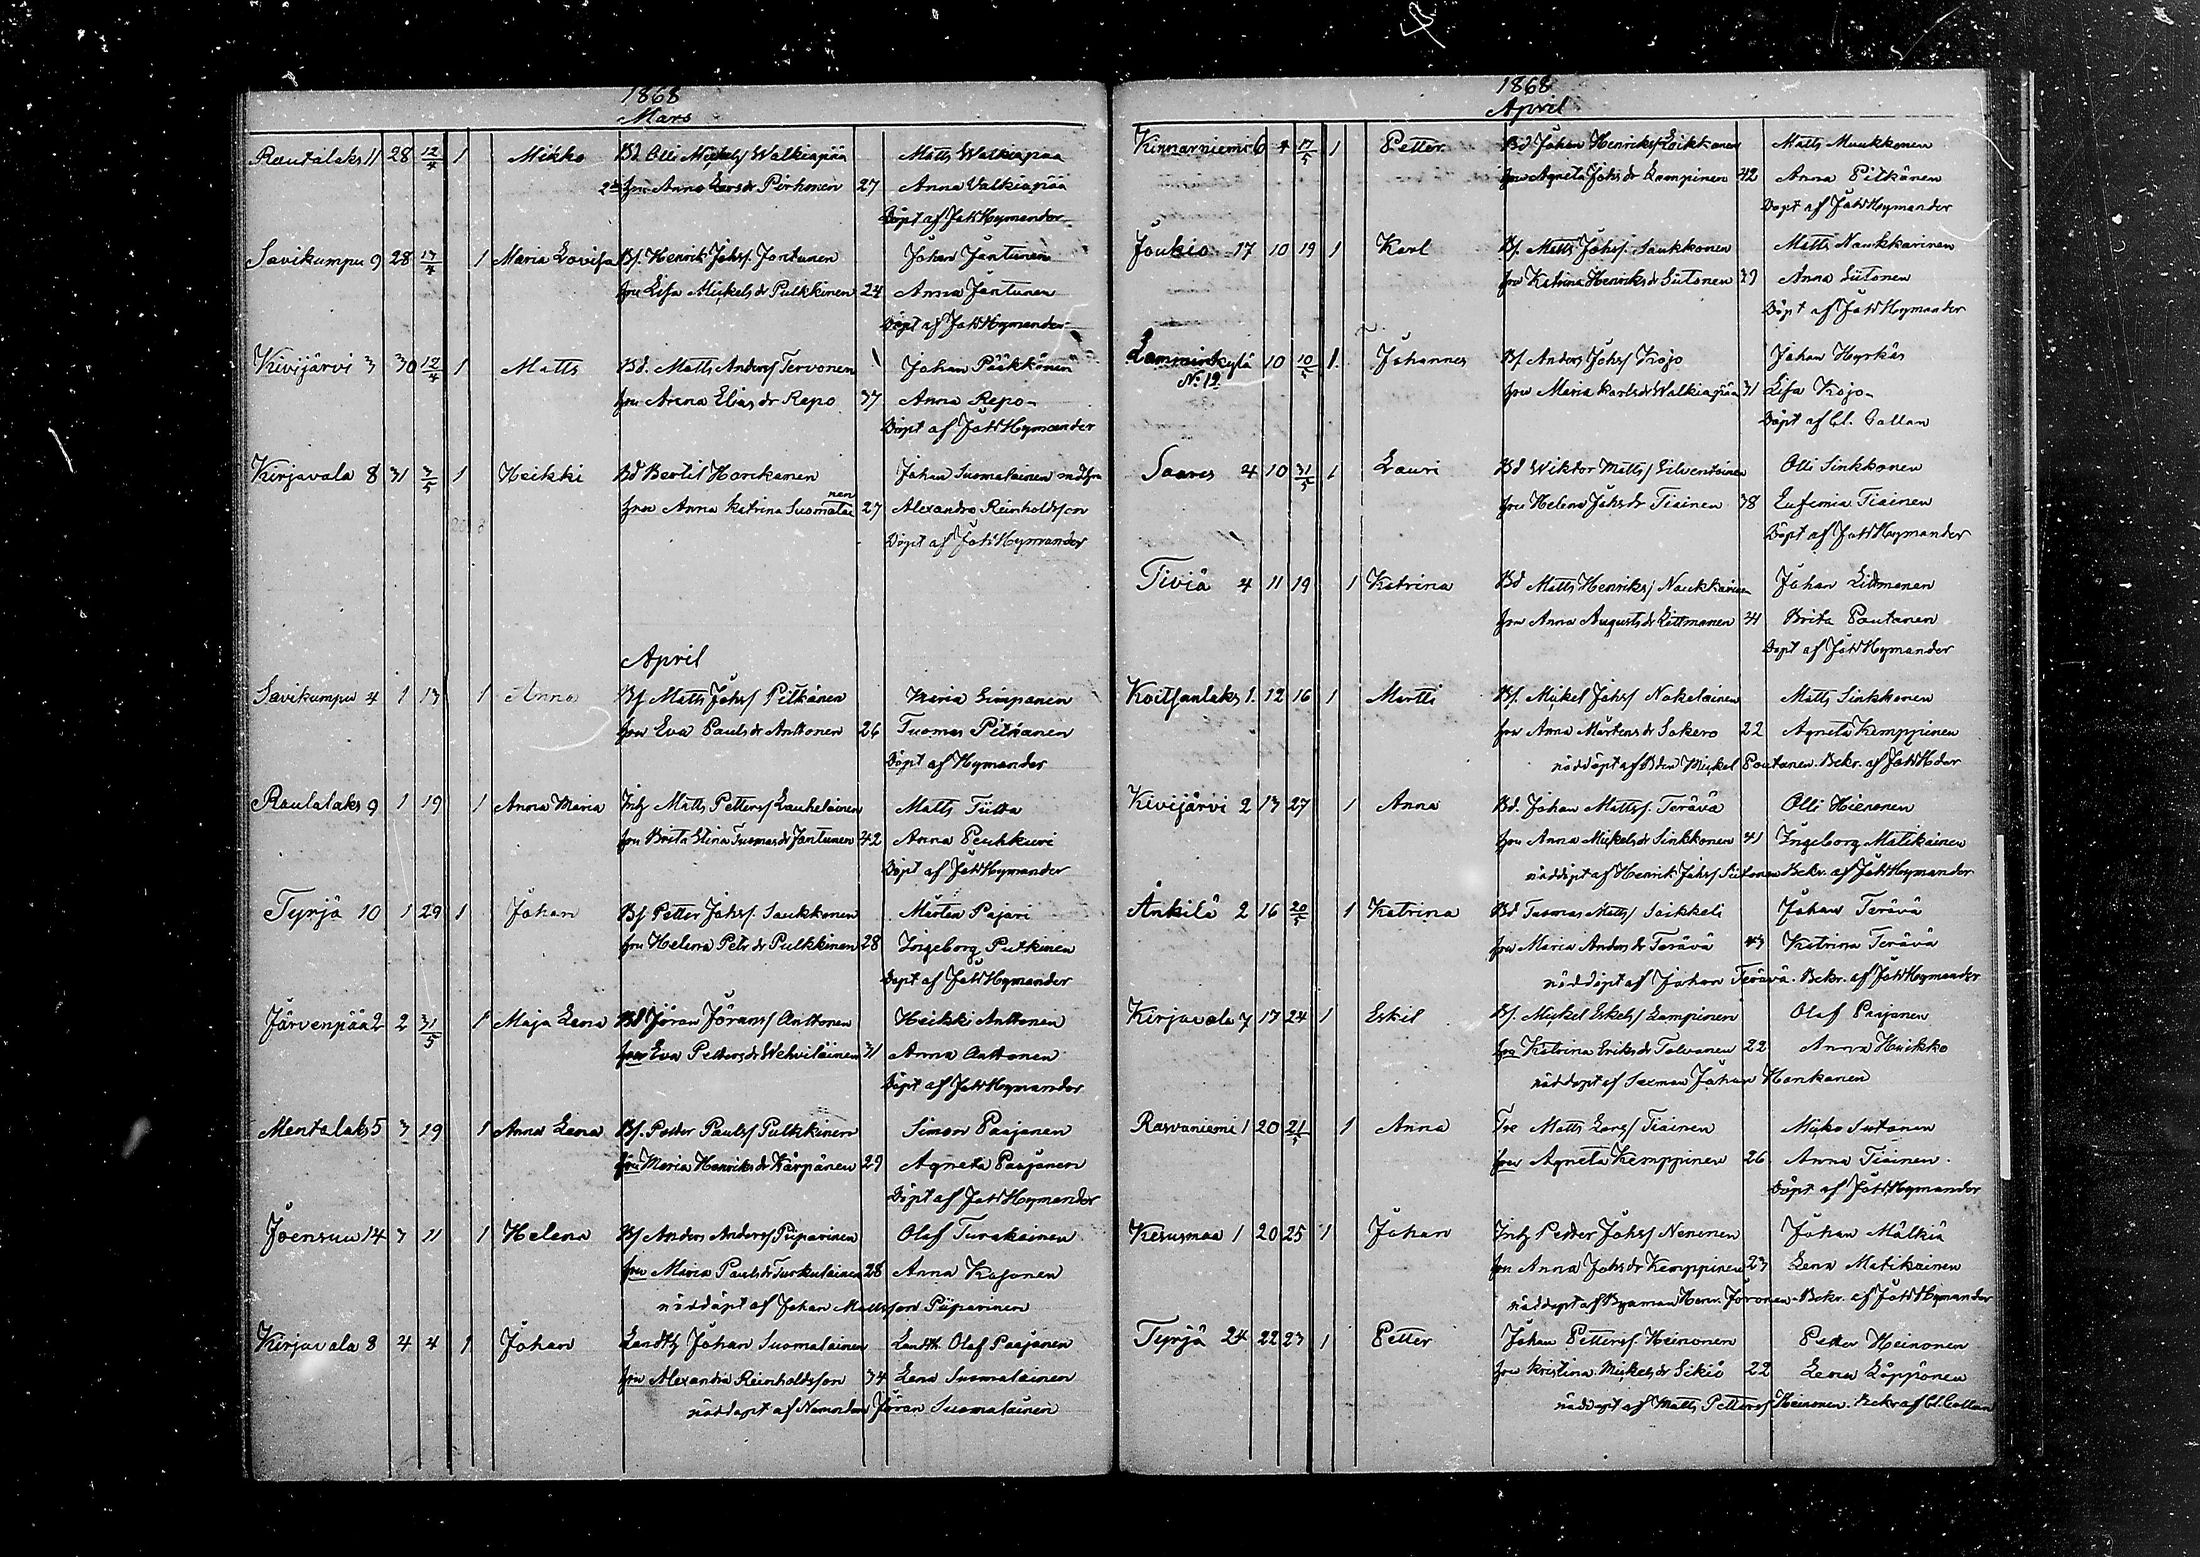 1868
Mars
Rautalaks 11 28 12/4 1 Mikko Bd Olli Mickels/ Walkiapää Matts Walkiapää
hru Anna Larsdr Pirhonen 27 Anna Valkiapää
Döpt af Jak Hymander
Savikumpu 9 28 17/4 1 Maria Lovisa Bf. Henrik Johs/. Jantunen Johan Jantunen
hru Lisa Mickelsdr Pulkkinen 24 Anna Jantunen
Döpt af Jak Hymander
Kivijärvi 3 30 12/4 1 Matts Bd. Matts Anders/ Tervonen Johan Pääkkönen
hru Anna Eliasdr Repo 37 Anna Repo
Döpt af Jak Hymander
Kirjavala 8 31 3/5 1 Heikki Bd Bertil Honkanen Johan Suomalainen md hru
hru Anna Katrina Suomalainen 27 Alexandra Reinholdsson
Döpt af Jak Hymander
April
Savikumpu 4 1 13 1 Anna Bf Matts Johs/ Pitkänen Maria Simpanen
hru Eva Paulsdr Anttonen 26 Tuomas Pitkänen
Döpt af Hymander
Rautalaks 9 1 19 1 Anna Maria Inh Matts Petters/ Laukelainen Matts Tiitta
hru Brita Stina Tuomasdr Jantunen 42 Anna Peuhkuri
Döpt af Jak Hymander
Tyrjä 10 1 29 1 Johan Bf Petter Johs/. Saukkonen Mårten Pajari
hru Helena Petrdr Pulkkinen 28 Ingeborg Putkinen
Döpt af Jak Hymander
Järvenpää 2 2 31/5 1 Maja Lena Bd Jöran Jörans/ Anttonen Heikki Anttonen
hru Eva Pettersdr Wehviläinen 31 Anna Anttonen
Döpt af Jak Hymander
Mentalaks 5 3 19 1 Anna Lena Bf. Petter Pauls/ Pulkkinen Simon Paajanen
hru Maria Henriksdr Kärpänen 29 Agneta Paajanen
Döpt af Jak Hymander
Joensuu 14 3 11 1 Helena Bf Anders Anders/ Piiparinen Olof Turakainen
hru Maria Paulsdr Turkulainen 28 Anna Kasonen
nöddöpt af Johan Mattsson Piiparinen
Kirjavala 8 4 4 1 Johan Landth Johan Suomalainen Landth. Olof Paajanen
hru Alexandra Reinholdsson 34 Lena Suomalainen
nöddöpt af Nämndem Jöran Suomalainen
1868
April
Kinnarniemi 6 4 17/5 1 Petter Bd Johan Henriks/ Loikkanen Matts Muukkonen
hru Agneta Johsdr Lampinen 42 Anna Pitkänen
Döpt af Jak Hymander
Joukio 17 10 19 1 Karl Bf. Matts Johs/. Saukkonen Matts Naukkarinen
hru Katrina Henriksdr Siitonen 39 Anna Siitonen
Döpt af Jak Hymander
Lamminkylä 10 10/5 1 Johannes Bf. Anders Johs/ Kojo Johan Hyrkäs
No 12
hru Maria Karlsdr Walkiapää 31 Lisa Kojo
Döpt af Cl. Collan
Saares 4 10 31/5 1 Lauri Bd Wiktor Matts/ Silventoinen Olli Sinkkonen
hru Helena Johsdr Tiainen 38 Eufemia Tiainen
Döpt af Jak Hymander
Tiviä 4 11 19 1 Katrina Bd Matts Henriks/ Naukkarinen Johan Littmanen
hru Anna Augustsdr Littmanen 41 Brita Poutanen
Döpt af Jak Hymander
Koitsanlaks 1. 12 16 1 Martti Bf. Mickel Johs/ Nokelainen Matts Sinkkonen
hru Anna Mårtensdr Sokero 22 Agneta Kemppinen
nöddöpt af Bden Mickel Poutanen. Bekr. af Jak Hder
Kivijärvi 2 13 27 1 Anna Bd. Johan Matts/. Terävä Olli Hienonen
hru Anna Mickelsdr Sinkkonen 41 Ingeborg Matikainen
nöddöpt af Henrik Johs/ Siitonen Bekr. af Jak Hymander
Änkilä 2 16 20/5 1 Katrina Bd Tuomas Matts/ Soikkeli Johan Terävä
hru Maria Andersdr Terävä 43 Katrina Terävä
nöddöpt af Johan Terävä. Bekr. af Jak Hymander
Kirjavala 7 17 24 1 Eskil Bf. Mickel Eskels/ Lampinen Olof Paajanen
hru Katrina Eriksdr Tolvanen 22 Anna Huikko
nöddöpt af Sexman Johan Honkanen
Rasvaniemi 1 20 21/5 1 Anna Tre Matts Lars/ Tiainen Micko Sutonen
hru Agneta Kemppinen 26 Anna Tiainen
Döpt af Jak Hymander
Kesusmaa 1 20 25 1 Johan Inh Petter Johs/ Nenonen Johan Mälkiä
hru Anna Johsdr Kemppinen 23 Lena Matikainen
nöddöpt af Byaman Henr. Joronen. Bekr. af Jak Hymander
Tyrjä 24 22 23 1 Petter Johan Petters/. Heinonen Petter Heinonen
hru Kristina Mickelsdr Sikiö 22 Lena Löppönen
nöddöpt af Matts Petters/ Heinonen. Bekr af Cl. Collan